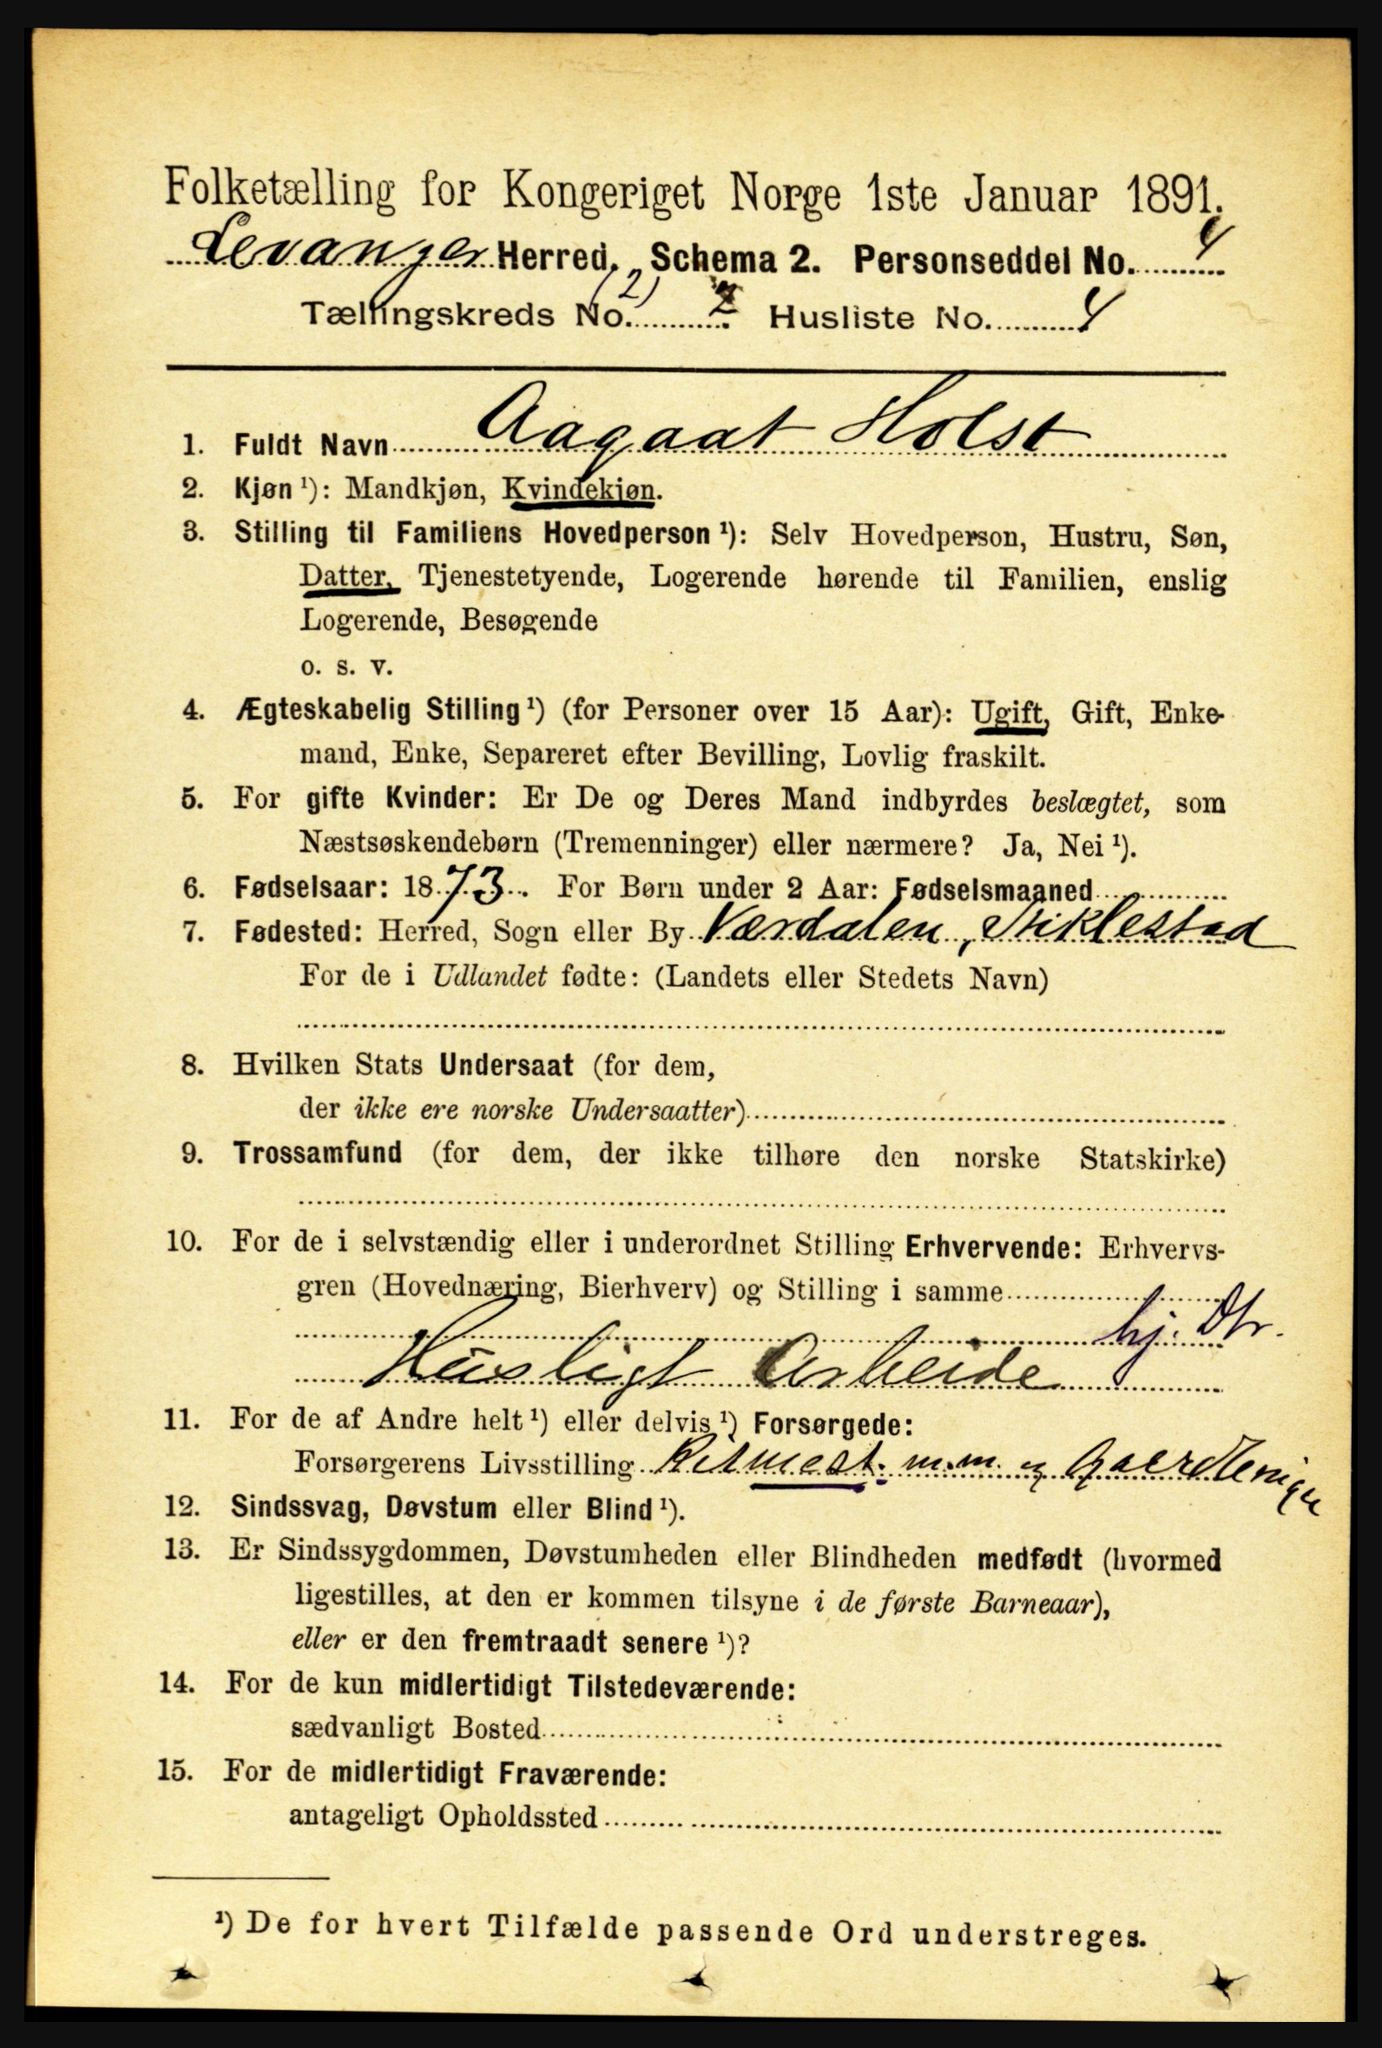 Folketælling for Kongeriget Norge 1ste Januar 1891.
Levanger Herred. Schema 2. Personseddel No. 4
Tællingskreds No. (2) 2. Husliste No. 4
1. Fuldt Navn Aagaat Holst
2. Kjøn ¹): Mandkjøn, Kvindekjøn.
3. Stilling til Familiens Hovedperson ¹): Selv Hovedperson, Hustru, Søn,
Datter, Tjenestetyende, Logerende hørende til Familien, enslig
Logerende, Besøgende
o. s. v.
4. Ægteskabelig Stilling ¹) (for Personer over 15 Aar): Ugift, Gift, Enke-
mand, Enke, Separeret efter Bevilling, Lovlig fraskilt.
5. For gifte Kvinder: Er De og Deres Mand indbyrdes beslægtet, som
Næstsøskendebørn (Tremenninger) eller nærmere? Ja, Nei ¹).
6. Fødselsaar: 1873. For Børn under 2 Aar: Fødselsmaaned
7. Fødested: Herred, Sogn eller By Værdalen, Stiklestad
For de i Udlandet fødte: (Landets eller Stedets Navn)
8. Hvilken Stats Undersaat (for dem,
der ikke ere norske Undersaatter)
9. Trossamfund (for dem, der ikke tilhøre den norske Statskirke)
10. For de i selvstændig eller i underordnet Stilling Erhvervende: Erhvervs-
gren (Hovednæring, Bierhverv) og Stilling i samme
hj. Dtr.
Husligt Arbeide
11. For de af Andre helt ¹) eller delvis ¹) Forsørgede:
Forsørgerens Livsstilling Ritmest. m.m.
12. Sindssvag, Døvstum eller Blind ¹).
13. Er Sindssygdommen, Døvstumheden eller Blindheden medfødt (hvormed
ligestilles, at den er kommen tilsyne i de første Barneaar),
eller er den fremtraadt senere ¹)?
14. For de kun midlertidigt Tilstedeværende:
sædvanligt Bosted
15. For de midlertidigt Fraværende:
antageligt Opholdssted
¹) De for hvert Tilfælde passende Ord understreges.